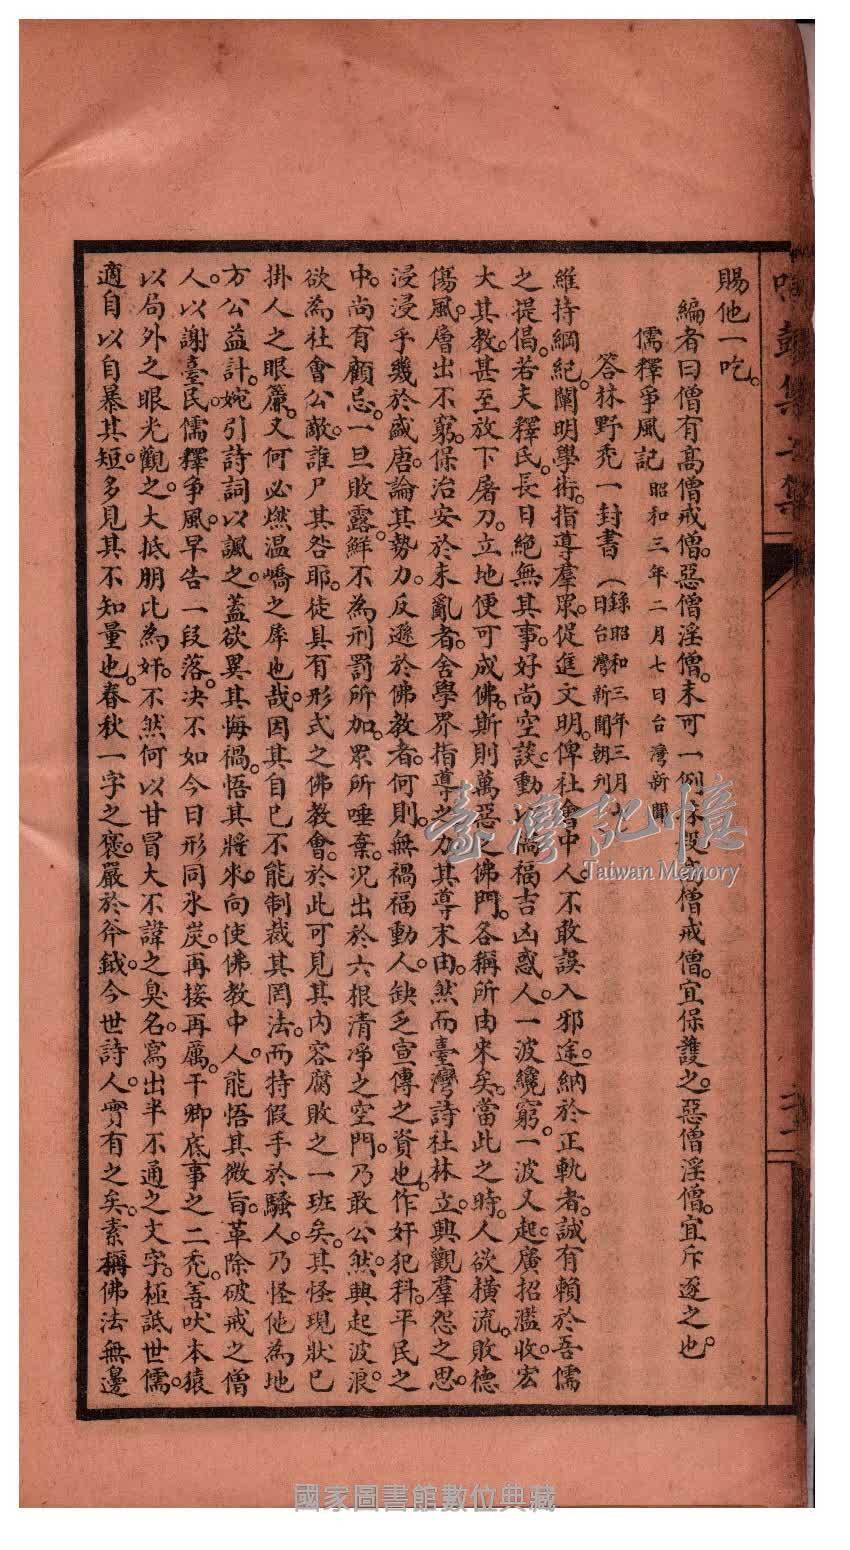 鳴鼓集二集
二一
賜他一吃。
編者曰僧有高僧戒僧。惡僧淫僧。未可一例。高僧戒僧。宜保護之。惡僧淫僧。宜斥逐之也。
儒釋爭風記 昭和三年二月七日台灣新聞
答林野禿一封書 (錄昭和三年三月七
日台灣新聞朝刊
維持綱紀。闡明學術。指導羣眾。促進文明。俾社會中人。不敢誤入邪途。納於正軌者。誠有賴於吾儒
之提倡。若夫釋氏。長日絕無其事。好尚空談。動以禍福吉凶惑人。一波纔窮。一波又起。廣招濫收。宏
大其教。甚至放下屠刀。立地便可成佛。斯則萬惡之佛門。各稱所由來矣。當此之時。人欲橫流。敗德
傷風。層出不窮。保治安於未亂者。舍學界指導之力。其導末由。然而臺灣詩社林立。興觀羣怨之思。
浸浸乎幾於盛唐。論其勢力。反遜於佛教者。何則。無禍福動人。缺乏宣傳之資也。作奸犯科。平民之
中。尚有顧忌。一旦敗露。鮮不為刑罰所加。眾所唾棄。況出於六根清淨之空門。乃敢公然興起波浪。
欲為社會公敵。誰尸其咎耶。徒具有形式之佛教會。於此可見其內容腐敗之一班矣。其怪現狀已
掛人之眼簾。又何必燃温嶠之犀也哉。因其自己不能制裁其罔法。而持假手於騷人。乃怪他為地
方公益計。婉引詩詞以諷之。蓋欲異其悔禍。悟其將來。向使佛教中人。能悟其微旨。革除破戒之僧
人。以謝臺民。儒釋爭風。早告一段落。決不如今日形同氷炭。再接再厲。干卿底事之二禿。善吠本猿
以局外之眼光觀之。大抵朋比為奸。不然何以甘冒大不諱之臭名。寫出半不通之文字。極詆世儒。
適自以自暴其短。多見其不知量也。春秋一字之褒。嚴於斧鉞。今世詩人。實有之矣。素稱佛法無邊
臺灣記憶
Taiwan Memory
國家圖書館數位典藏